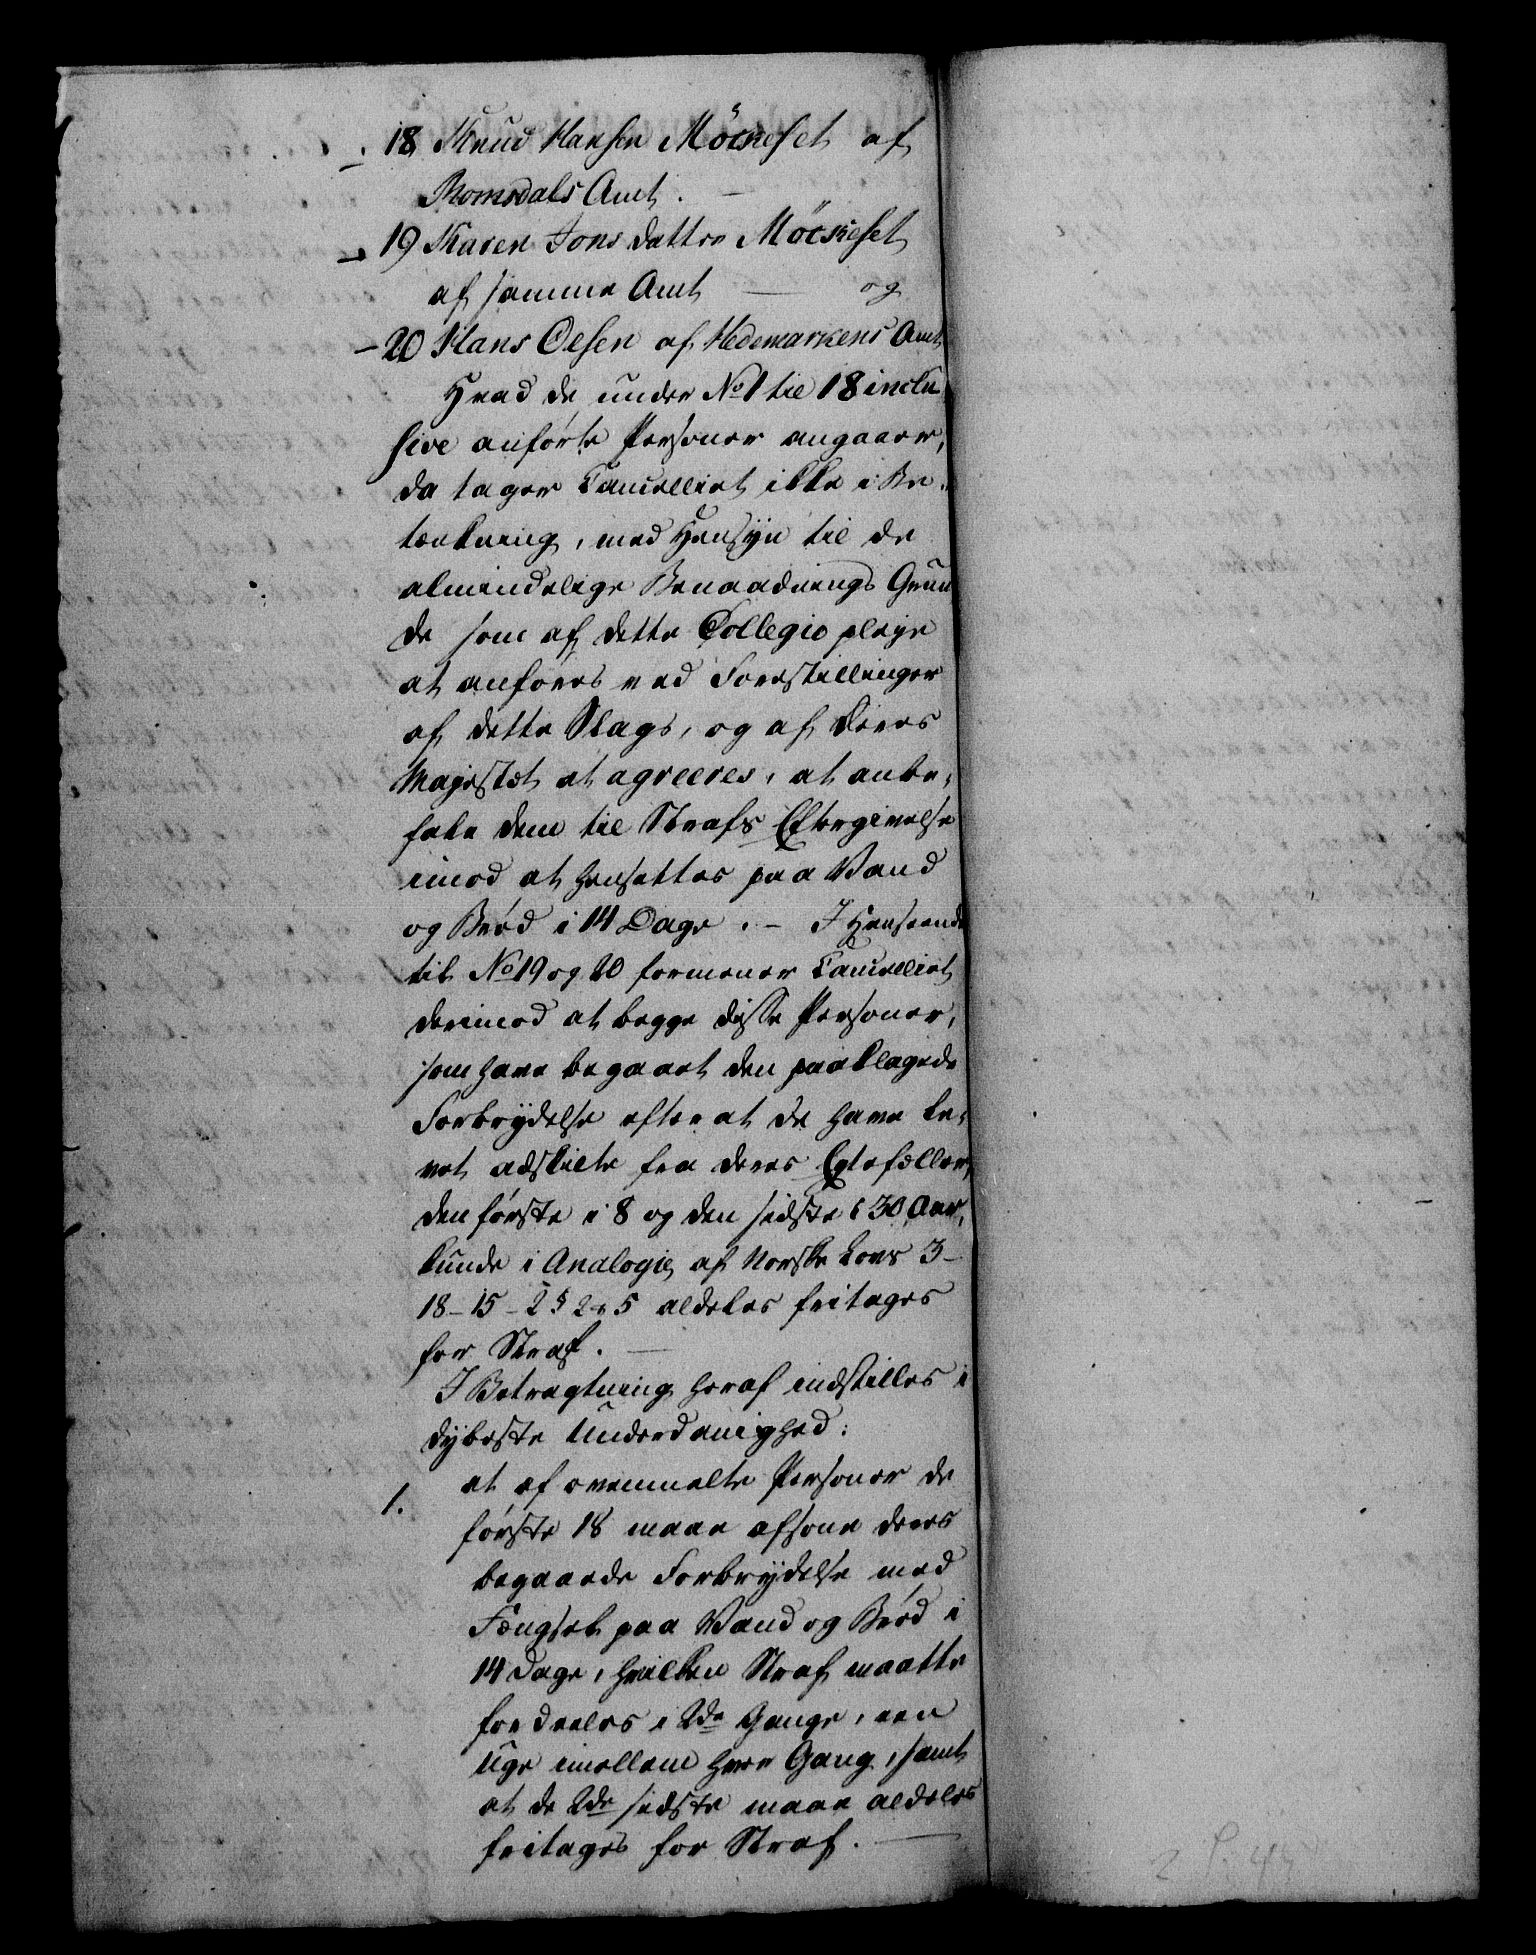 18 Knud Hansen Möckeset af
Romsdals Amt. —
19 Karen Jons datter Möckeset
af samme Amt — og
20 Hans Olesen af Hedemarkens Amt
Hvad de under No 1 til 18 inclu
sive anførte Personer angaaer,
da tager Cancelliet ikke i Be-
tænkning, med Hensyn til de
almindelige Benaadnings Grun
de som af dette Collegio pleye
at anføres ved Forestillinger
af dette Slags, og af Deres
Majestæt at agreeres, at anbe-
fale dem til Strafs Eftergivelse
imod at hensættes paa Vand
og Brød i 14 Dage. — I Henseende
til No 19 og 20 formener Cancelliet
derimod at begge disse Personer,
som have begaaet den paaklagede
Forbrydelse efter at de have le-
vet adskilte fra deres Egtefæller,
den første i 8 og den sidste i 30 Aar,
kunde i Analogie af Norske Lovs 3-
18-15-2 § 2 5 aldeles fritages
for Straf. —
I Betragtning heraf indstilles i
dybeste Underdanighed:
1. at af ovenmelte Personer de
første 18 maae afsone deres
begaaede Forbrydelse med
Fængsel paa Vand og Brød i
14 Dage, hvilken Straf maatte
fordeeles i 2de Gange, een
Uge imellem hver Gang, samt
at de 2de sidste maae aldeles
fritages for Straf. —